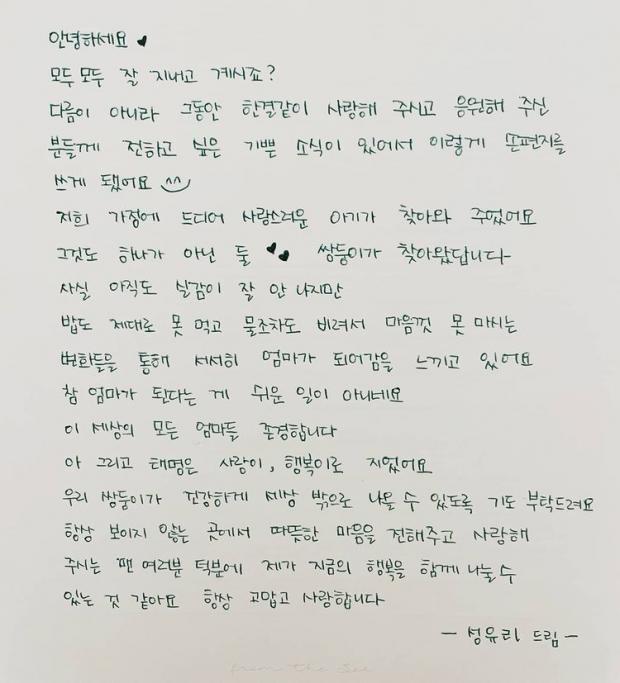 안녕하세요 ♥
모두모두 잘 지내고 계시죠?
다름이 아니라 그동안 한결같이 사랑해 주시고 응원해 주신
분들께 전하고 싶은 기쁜 소식이 있어서 이렇게 손편지를
쓰게 됐어요 ^^
저희 가정에 드디어 사랑스러운 아기가 찾아와 주었어요
그것도 하나가 아닌 둘 ♥♥ 쌍둥이가 찾아왔답니다~
사실 아직도 실감이 잘 안 나지만
밥도 제대로 못 먹고 물조차도 비려서 마음껏 못 마시는
변화들을 통해 서서히 엄마가 되어감을 느끼고 있어요
참 엄마가 된다는 게 쉬운 일이 아니네요
이 세상의 모든 엄마들 존경합니다
아 그리고 태명은 사랑이, 행복이로 지었어요
우리 쌍둥이가 건강하게 세상 밖으로 나올 수 있도록 기도 부탁드려요
항상 보이지 않는 곳에서 따뜻한 마음을 전해주고 사랑해
주시는 팬 여러분 덕분에 제가 지금의 행복을 함께 나눌 수
있는 것 같아요 항상 고맙고 사랑합니다
- 성유리 드림 -
from the See